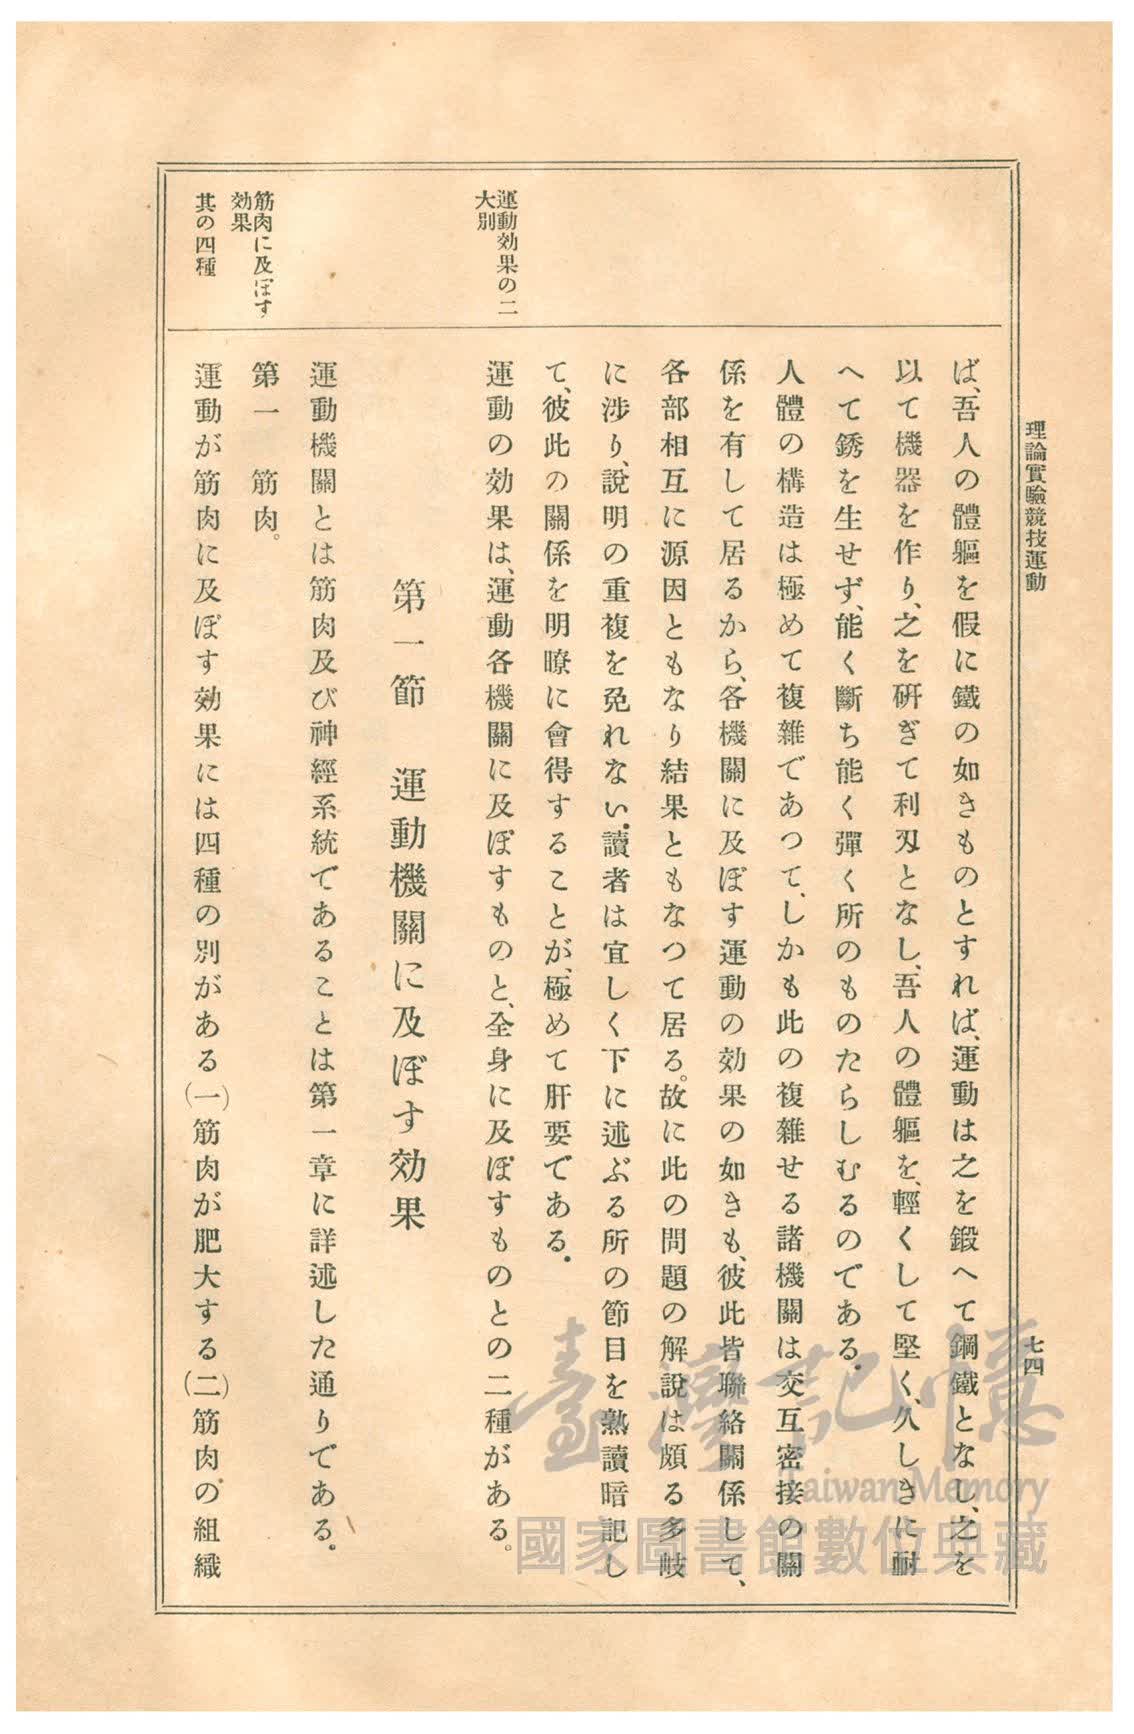 理論實驗競技運動
七四
ば、吾人の體軀を假に鐵の如きものとすれば、運動は之を鍛へて鋼鐵となし、之を
以て機器を作り、之を研ぎて利刄となし、吾人の體軀を、輕くして堅く、久しきに耐
へて銹を生せず、能く斷ち能く彈く所のものたらしむるのである。
人體の構造は極めて複雜であつて、しかも此の複雜せる諸機關は交互密接の關
係を有して居るから、各機關に及ぼす運動の効果の如きも、彼此皆聯絡關係して、
各部相互に源因ともなり結果ともなつて居る。故に此の問題の解說は頗る多岐
に涉り、說明の重複を免れない。讀者は宜しく下に述ぶる所の節目を熟讀暗記し
て、彼此の關係を明瞭に會得することが、極めて肝要である。
運動効果の二
大別
運動の効果は、運動各機關に及ぼすものと、全身に及ぼすものとの二種がある。
第一節　運動機關に及ぼす効果
運動機關とは筋肉及び神經系統であることは第一章に詳述した通りである。
筋肉に及ぼす
効果
第一　筋肉。
其の四種
運動が筋肉に及ぼす効果には四種の別がある(一)筋肉が肥大する(二)筋肉の組織
臺灣記憶
Taiwan Memory
國家圖書館數位典藏